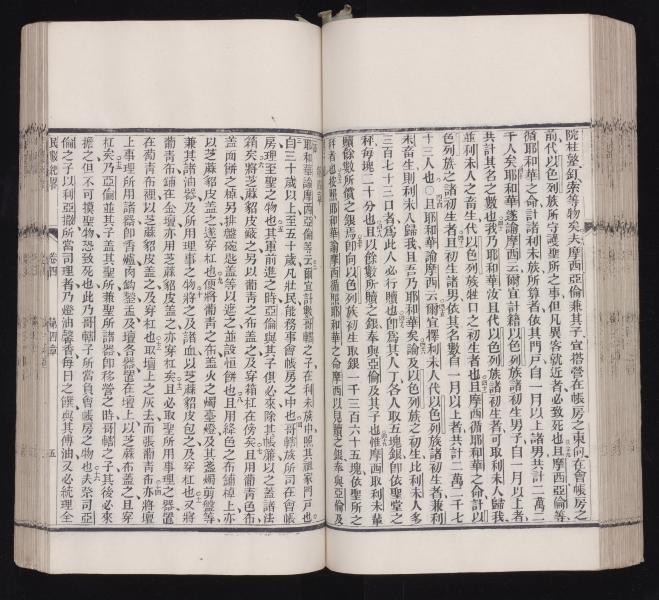 院柱槃釘索等物矣夫摩西亞倫兼其子宜搭營在帳房之東向在會帳房之
前代以色列族所守護聖所之事但凡異客就近者必致死也且摩西亞倫等
循耶和華之命計諸利未族所算者依其門戶自一月以上諸男共計二萬二
千人矣耶和華遂諭摩西云爾宜計籍以色列族諸初生男子自一月以上者
共計其名之數也我乃耶和華汝且代以色列族諸初生者可取利未人歸我
並利未人之畜生代以色列族牲口之初生者也且摩西循耶和華之命計以
色列族之諸初生者且初生諸男依其名數自一月以上者共計二萬二千七
十三人也○且耶和華諭摩西云爾宜擇利未人代以色列族諸初生者兼利
未畜生則利未人歸我且吾乃耶和華矣論及以色列族之初生比利未人多
三百七十三口者爲此人必行贖也卽爲其人丁各人取五塊銀卽依聖堂之
秤每塊二十分也且以餘數所贖之銀奉與亞倫及其子也惟摩西取利未輩
贖餘數所償之銀焉卽向以色列族初生取銀一千三百六十五塊依聖所之
秤者也按照耶和華諭摩西循照耶和華之命摩西以見贖之銀奉與亞倫及
耶和華諭摩西亞倫等云爾宜計數哥轄之子在利未族中照其祖家門戶也
自三十歲以上至五十歲凡壯民能務事會帳房之中也哥轄族所司在會帳
房理至聖之物也其軍前進之時亞倫與其子俱必來除其帳簾以之蓋諸法
箱矣將芝蔴貂皮蔽之另以葡青之布蓋之及穿箱杠在傍矣且用葡青色布
蓋面餅之棹另排盤碗匙蓋等以遮之並設恒餅也且用絳色之布鋪棹上亦
以芝蔴貂皮蓋之遂穿杠也便將葡青之布蓋火之燭臺燈及其盞燭剪盤等
兼其諸油器及所用理事之物將之及諸皿以芝蔴貂皮包之及穿杠也又將
葡青布鋪在金壇亦用芝蔴貂皮蓋之亦穿杠矣且必取聖所用事理之器置
在葡青布裡以芝蔴貂皮蓋之及穿杠也取壇上之灰去而張葡青布亦將壇
上事理所用諸器卽香爐肉鈎鏊盂及壇各器置在壇上以芝蔴布蓋之且穿
杠矣乃亞倫並其子蓋其聖所兼聖所諸器卽移營之時哥轄之子其後必來
擔之但不可摸聖物恐致死也此乃哥轄子所當負會帳房之物也夫祭司亞
倫之子以利亞撒所當司理者乃燈油馨香每日之饌與其傅油又必統理全
民數紀畧 卷四 第四章 五